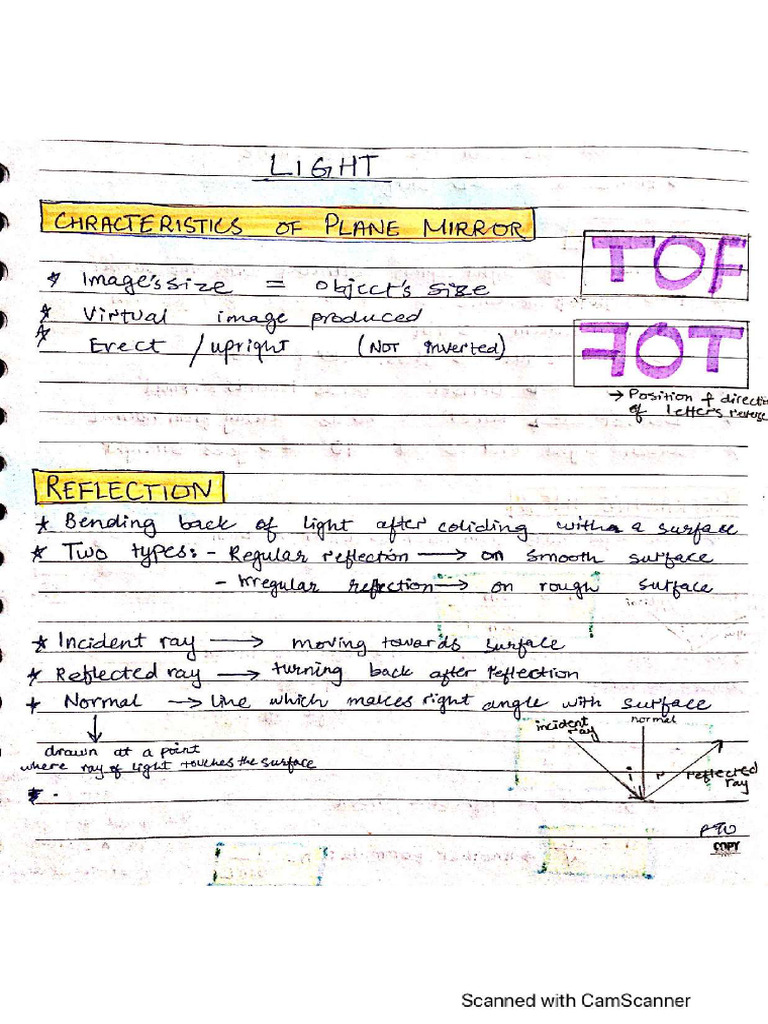 LIGHT
CHRACTERISTICS OF PLANE MIRROR
TOF
* Image's size = object's size
* Virtual image produced
* Erect / upright (NOT inverted)
TOF
→ Position & directi
of letters reverse
REFLECTION
* Bending back of light after coliding with a surface
* Two types: - Regular reflection → on smooth surface
- Irregular refection → on rough surface
* Incident ray → moving towards surface
* Reflected ray → turning back after reflection
* Normal → line which makes right angle with surface
incident
ray
normal
drawn at a point
where ray of light touches the surface
i
r
reflected
ray
* .
PTO
COPY
Scanned with CamScanner